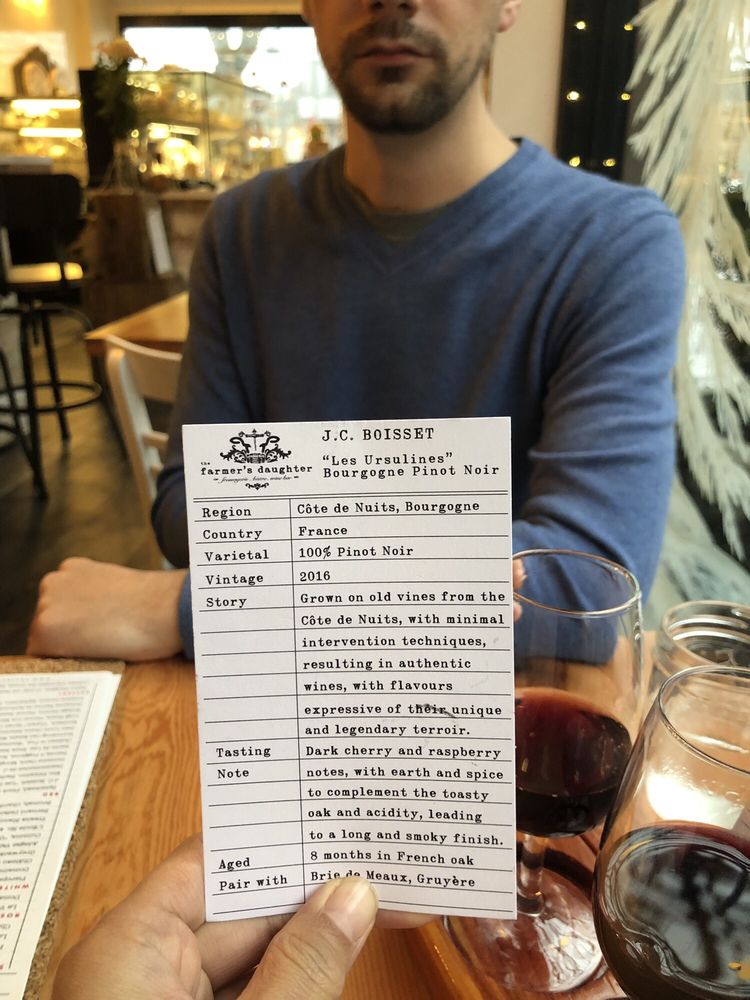 J.C. BOISSET
"Les Ursulines"
Bourgogne Pinot Noir
the
farmer's daughter
fromagerie. bistro. wine bar
Region Côte de Nuits, Bourgogne
Country France
Varietal 100% Pinot Noir
Vintage 2016
Story Grown on old vines from the
Côte de Nuits, with minimal
intervention techniques,
resulting in authentic
wines, with flavours
expressive of their unique
and legendary terroir.
Tasting Dark cherry and raspberry
Note notes, with earth and spice
to complement the toasty
oak and acidity, leading
to a long and smoky finish.
Aged 8 months in French oak
Pair with Brie de Meaux, Gruyère